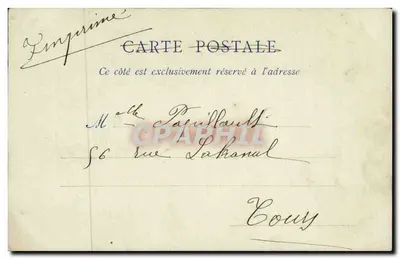 Imprimé
CARTE POSTALE
Ce côté est exclusivement réservé à l'adresse
Mlle Papillault
CPAPHIL
56 rue Lakanal
Tours